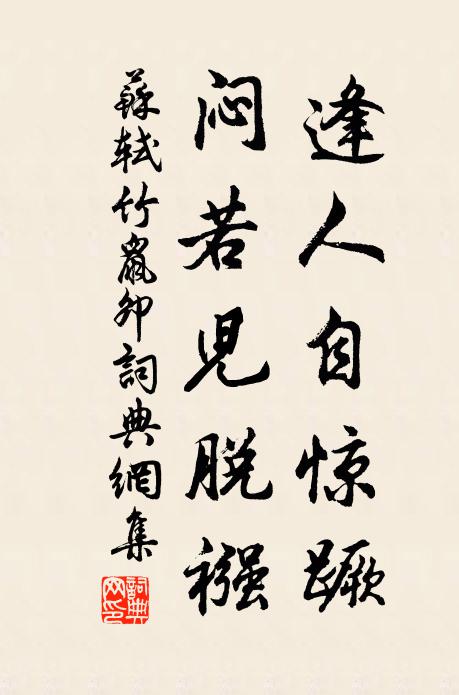 逢人自惊蹶
闷若儿脱襁
蘇軾竹䶉卯詞典網集
詞典网印